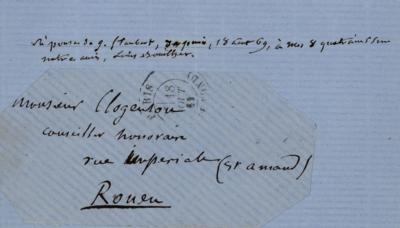 Réponse de G. Flaubert, 18 août 69, à mes 8 quatrains sur
notre ami, Louis Bouilhet.
PARIS
18
69
Monsieur Clogenson
conseiller honoraire
rue impériale (St amand)
Rouen